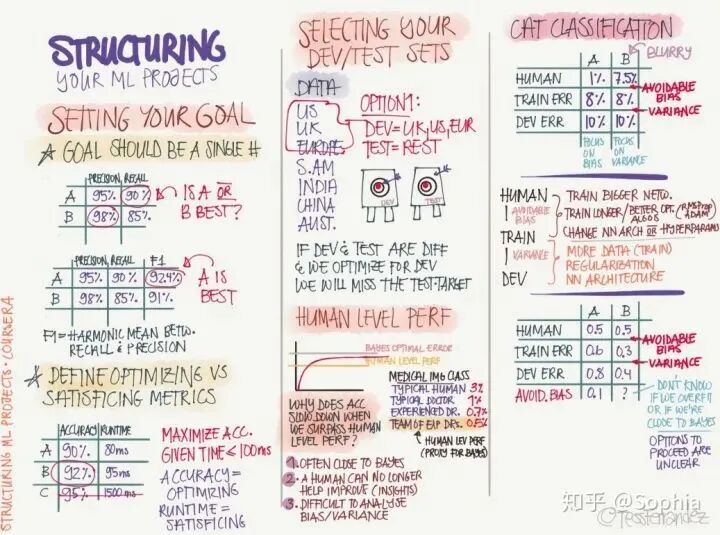 STRUCTURING
YOUR ML PROJECTS
SETTING YOUR GOAL
GOAL SHOULD BE A SINGLE #
PRECISION, RECALL
A 95% 90%
B 98% 85%
IS A OR
B BEST?
PRECISION, RECALL F1
A 95% 90% 92.4%
B 98% 85% 91%
A IS
BEST
F1 = HARMONIC MEAN BETW.
RECALL & PRECISION
DEFINE OPTIMIZING VS
SATISFICING METRICS
ACCURACY RUNTIME
A 90% 80ms
B 92% 95ms
C 95% 1500 ms
MAXIMIZE ACC.
GIVEN TIME ≤ 100ms
ACCURACY =
OPTIMIZING
RUNTIME =
SATISFICING
STRUCTURING ML PROJECTS · COURSERA
SELECTING YOUR
DEV/TEST SETS
DATA
US
UK
EUROPE
S.AM
INDIA
CHINA
AUST.
OPTION 1:
DEV = UK, US, EUR
TEST = REST
DEV
TEST
IF DEV & TEST ARE DIFF
& WE OPTIMIZE FOR DEV
WE WILL MISS THE TEST TARGET
HUMAN LEVEL PERF
BAYES OPTIMAL ERROR
HUMAN LEVEL PERF
WHY DOES ACC
SLOW DOWN WHEN
WE SURPASS HUMAN
LEVEL PERF?
MEDICAL IMG CLASS
TYPICAL HUMAN 3%
TYPICAL DOCTOR 1%
EXPERIENCED DR. 0.7%
TEAM OF EXP DRS. 0.5%
HUMAN LEV PERF
(PROXY FOR BAYES)
1. OFTEN CLOSE TO BAYES
2. A HUMAN CAN NO LONGER
HELP IMPROVE (INSIGHTS)
3. DIFFICULT TO ANALYSE
BIAS/VARIANCE
CAT CLASSIFICATION
A B
BLURRY
HUMAN 1% 7.5%
TRAIN ERR 8% 8%
DEV ERR 10% 10%
AVOIDABLE
BIAS
VARIANCE
FOCUS
ON
BIAS
FOCUS
ON
VARIANCE
HUMAN
AVOIDABLE
BIAS
TRAIN
VARIANCE
DEV
TRAIN BIGGER NETW.
TRAIN LONGER/BETTER OPT. ALGOS (RMSPROP ADAM)
CHANGE NN ARCH OR HYPERPARAMS
MORE DATA (TRAIN)
REGULARIZATION
NN ARCHITECTURE
A B
HUMAN 0.5 0.5
TRAIN ERR 0.6 0.3
DEV ERR 0.8 0.4
AVOID. BIAS 0.1 ?
AVOIDABLE
BIAS
VARIANCE
DON'T KNOW
IF WE OVERFIT
OR IF WE'RE
CLOSE TO BAYES
OPTIONS TO
PROCEED ARE
UNCLEAR
知乎 @Sophia
@TessFerrandez